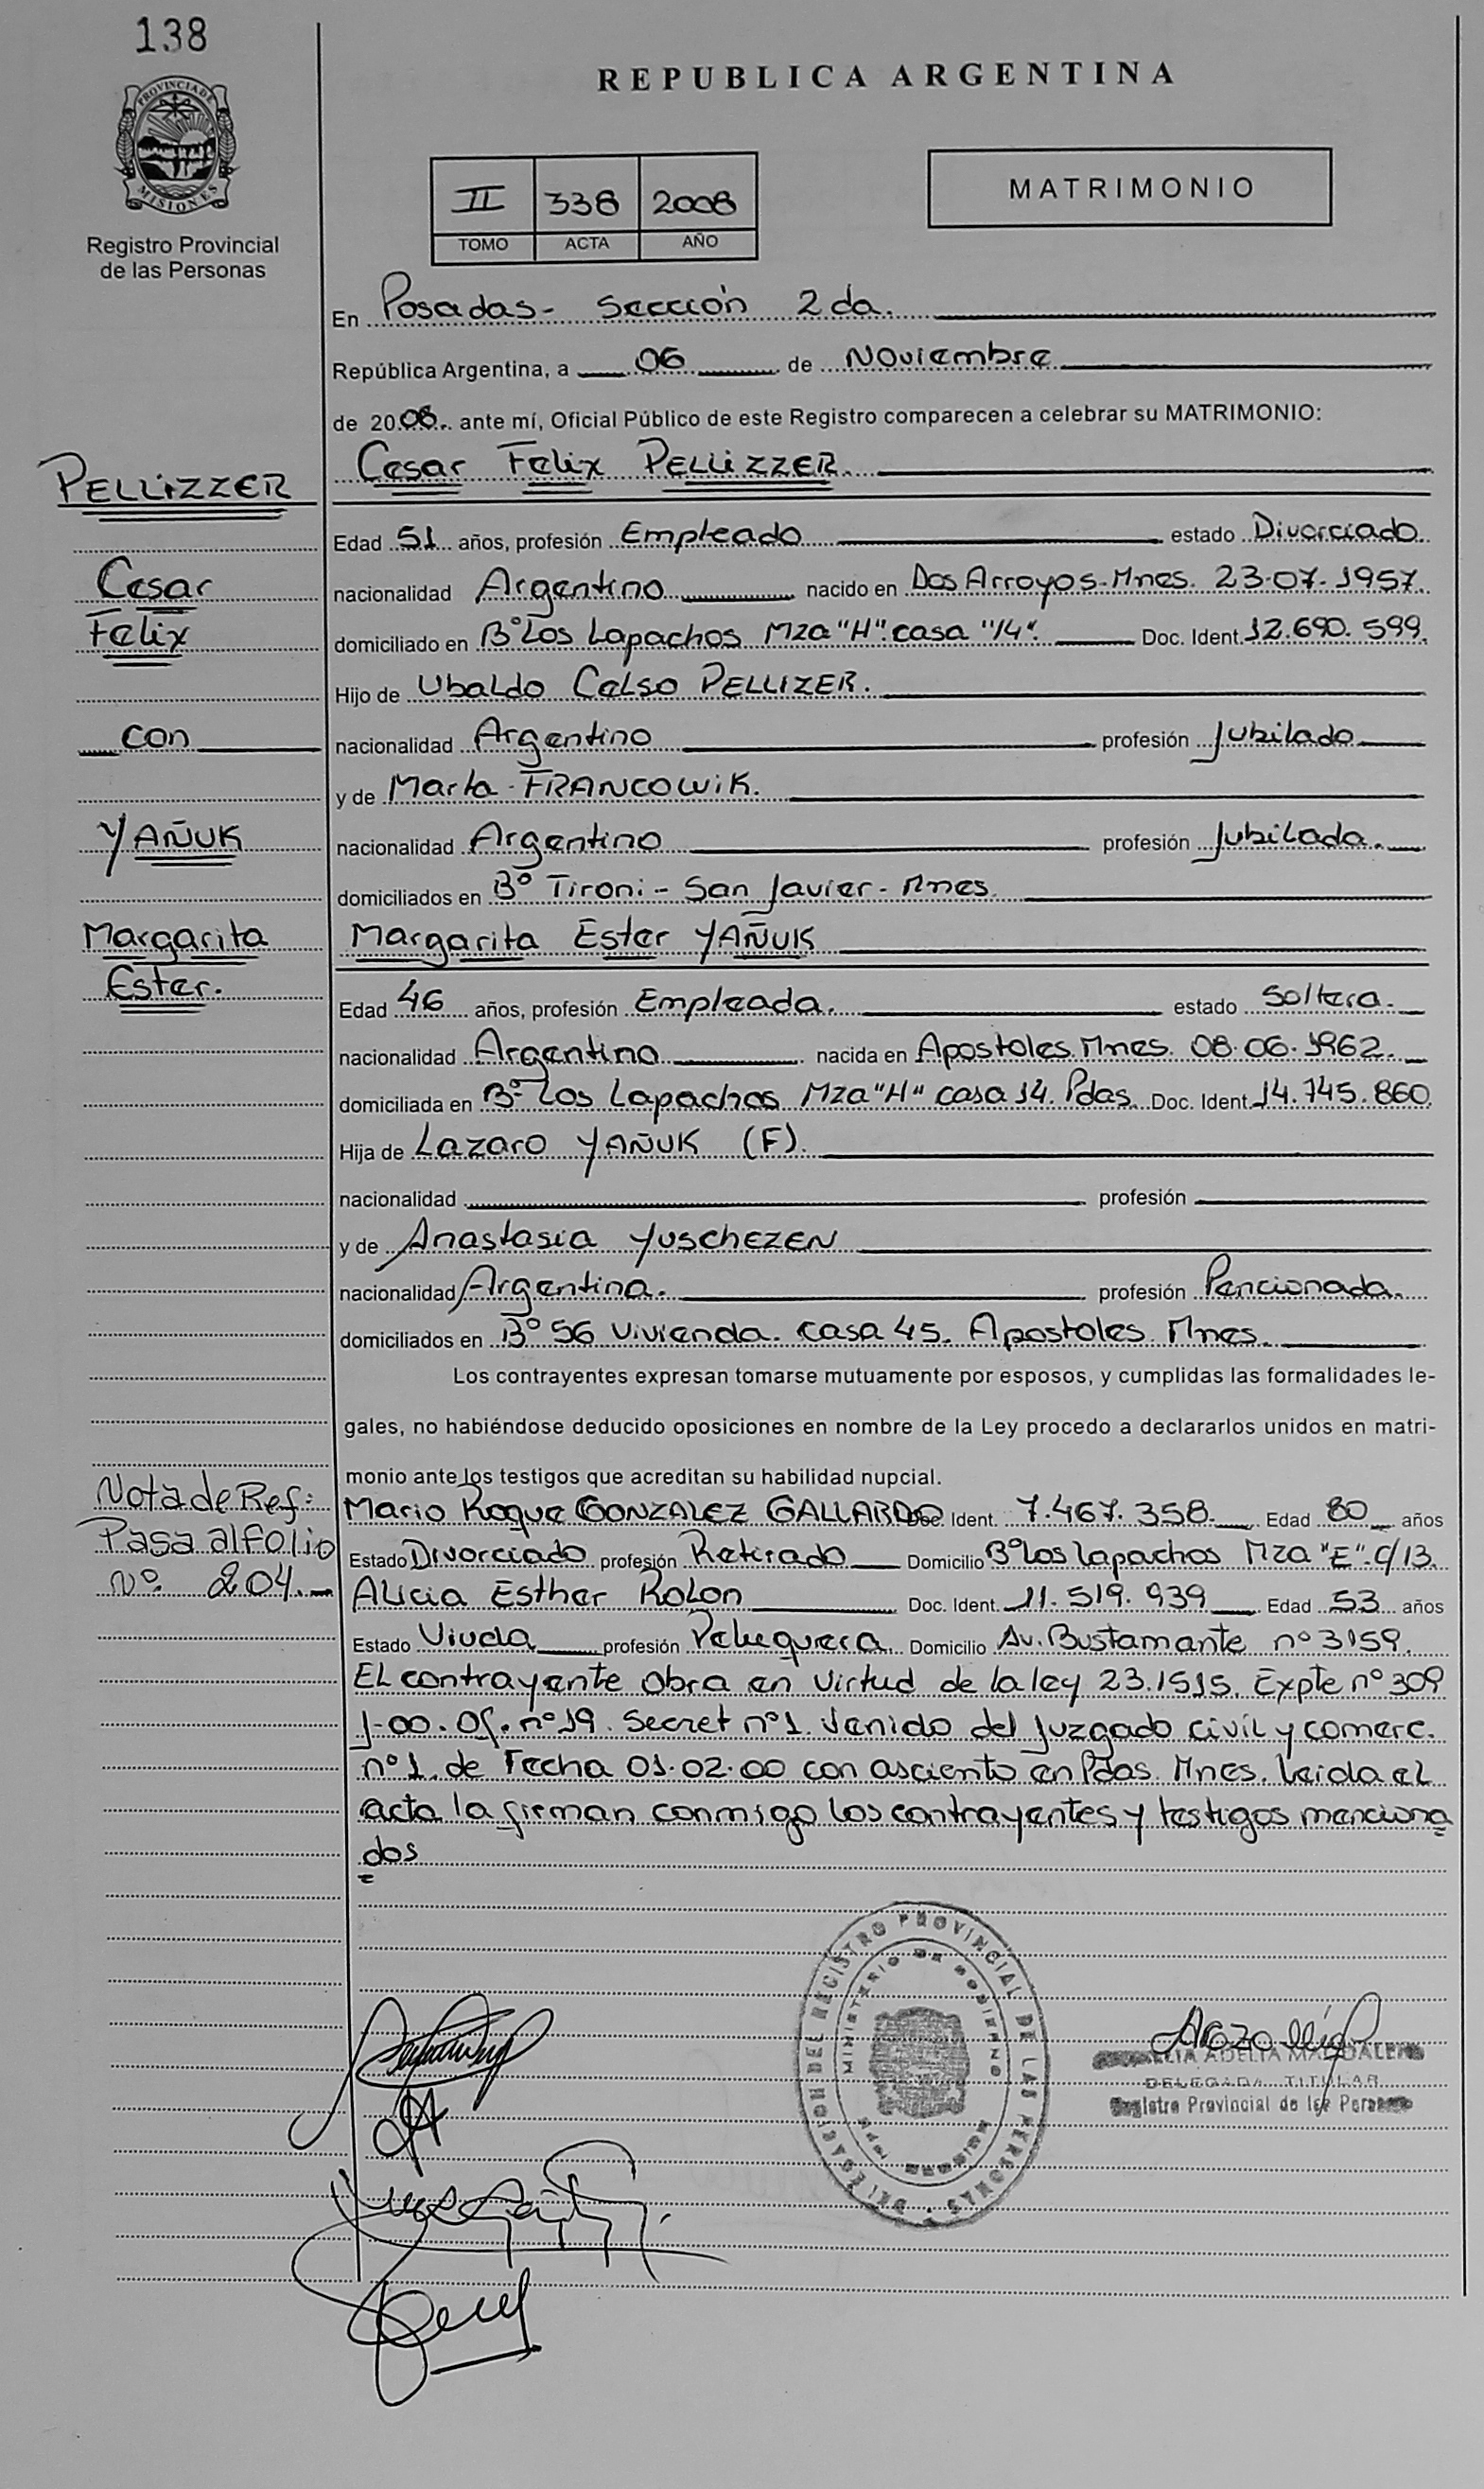 138
REPUBLICA ARGENTINA
PROVINCIA DE MISIONES
Registro Provincial
de las Personas
II 338 2008
TOMO ACTA AÑO
MATRIMONIO
En Posadas- Sección 2da.
República Argentina, a 06 de Noviembre
de 2008. ante mí, Oficial Público de este Registro comparecen a celebrar su MATRIMONIO:
PELLIZZER
Cesar Felix PELLIZZER.
Edad 51 años, profesión Empleado estado Divorciado
Cesar
nacionalidad Argentino nacido en Dos Arroyos-Mnes. 23-07-1957.
Felix
domiciliado en B° Los Lapachos Mza "H". casa "14". Doc. Ident. 12.690.599.
Hijo de Ubaldo Celso PELLIZER.
con
nacionalidad Argentino profesión Jubilado
y de Marta FRANCOWIK.
YAÑUK
nacionalidad Argentino profesión Jubilada.
domiciliados en B° Tironi - San Javier - Mnes.
Margarita
Margarita Ester YAÑUK
Ester.
Edad 46 años, profesión Empleada. estado Soltera.
nacionalidad Argentina nacida en Apostoles. Mnes. 08.06.1962.
domiciliada en B° Los Lapachos Mza "H" casa 14. Pdas. Doc. Ident. 14.745.860
Hija de Lazaro YAÑUK (F).
nacionalidad profesión
y de Anastasia YUSCHEZEN
nacionalidad Argentina. profesión Pencionada.
domiciliados en B° 56 Vivienda. casa 45. Apostoles. Mnes.
Los contrayentes expresan tomarse mutuamente por esposos, y cumplidas las formalidades le-
gales, no habiéndose deducido oposiciones en nombre de la Ley procedo a declararlos unidos en matri-
monio ante los testigos que acreditan su habilidad nupcial.
Nota de Ref:
Mario Roque GONZALEZ GALLARDO Doc. Ident. 7.467.358. Edad 80 años
Pasa al folio
Estado Divorciado profesión Retirado Domicilio B° Los Lapachos Mza "E". c/13.
N° 204.
Alicia Esther ROLON Doc. Ident. 11.519.939 Edad 53 años
Estado Viuda profesión Peluquera. Domicilio Av. Bustamante n° 3159.
El contrayente obra en virtud de la ley 23.1515. Expte n° 309
J-00. Of. n° 19. Secret n° 1. Venido del Juzgado civil y comerc.
n° 1. de Fecha 01.02.00 con asciento en Pdas. Mnes. Leida el
acta la firman conmigo los contrayentes y testigos menciona
dos
DELEGACION DEL REGISTRO PROVINCIAL DE LAS PERSONAS
MINISTERIO DE GOBIERNO
ADELIA
DELEGADA TITULAR
Registro Provincial de las Personas